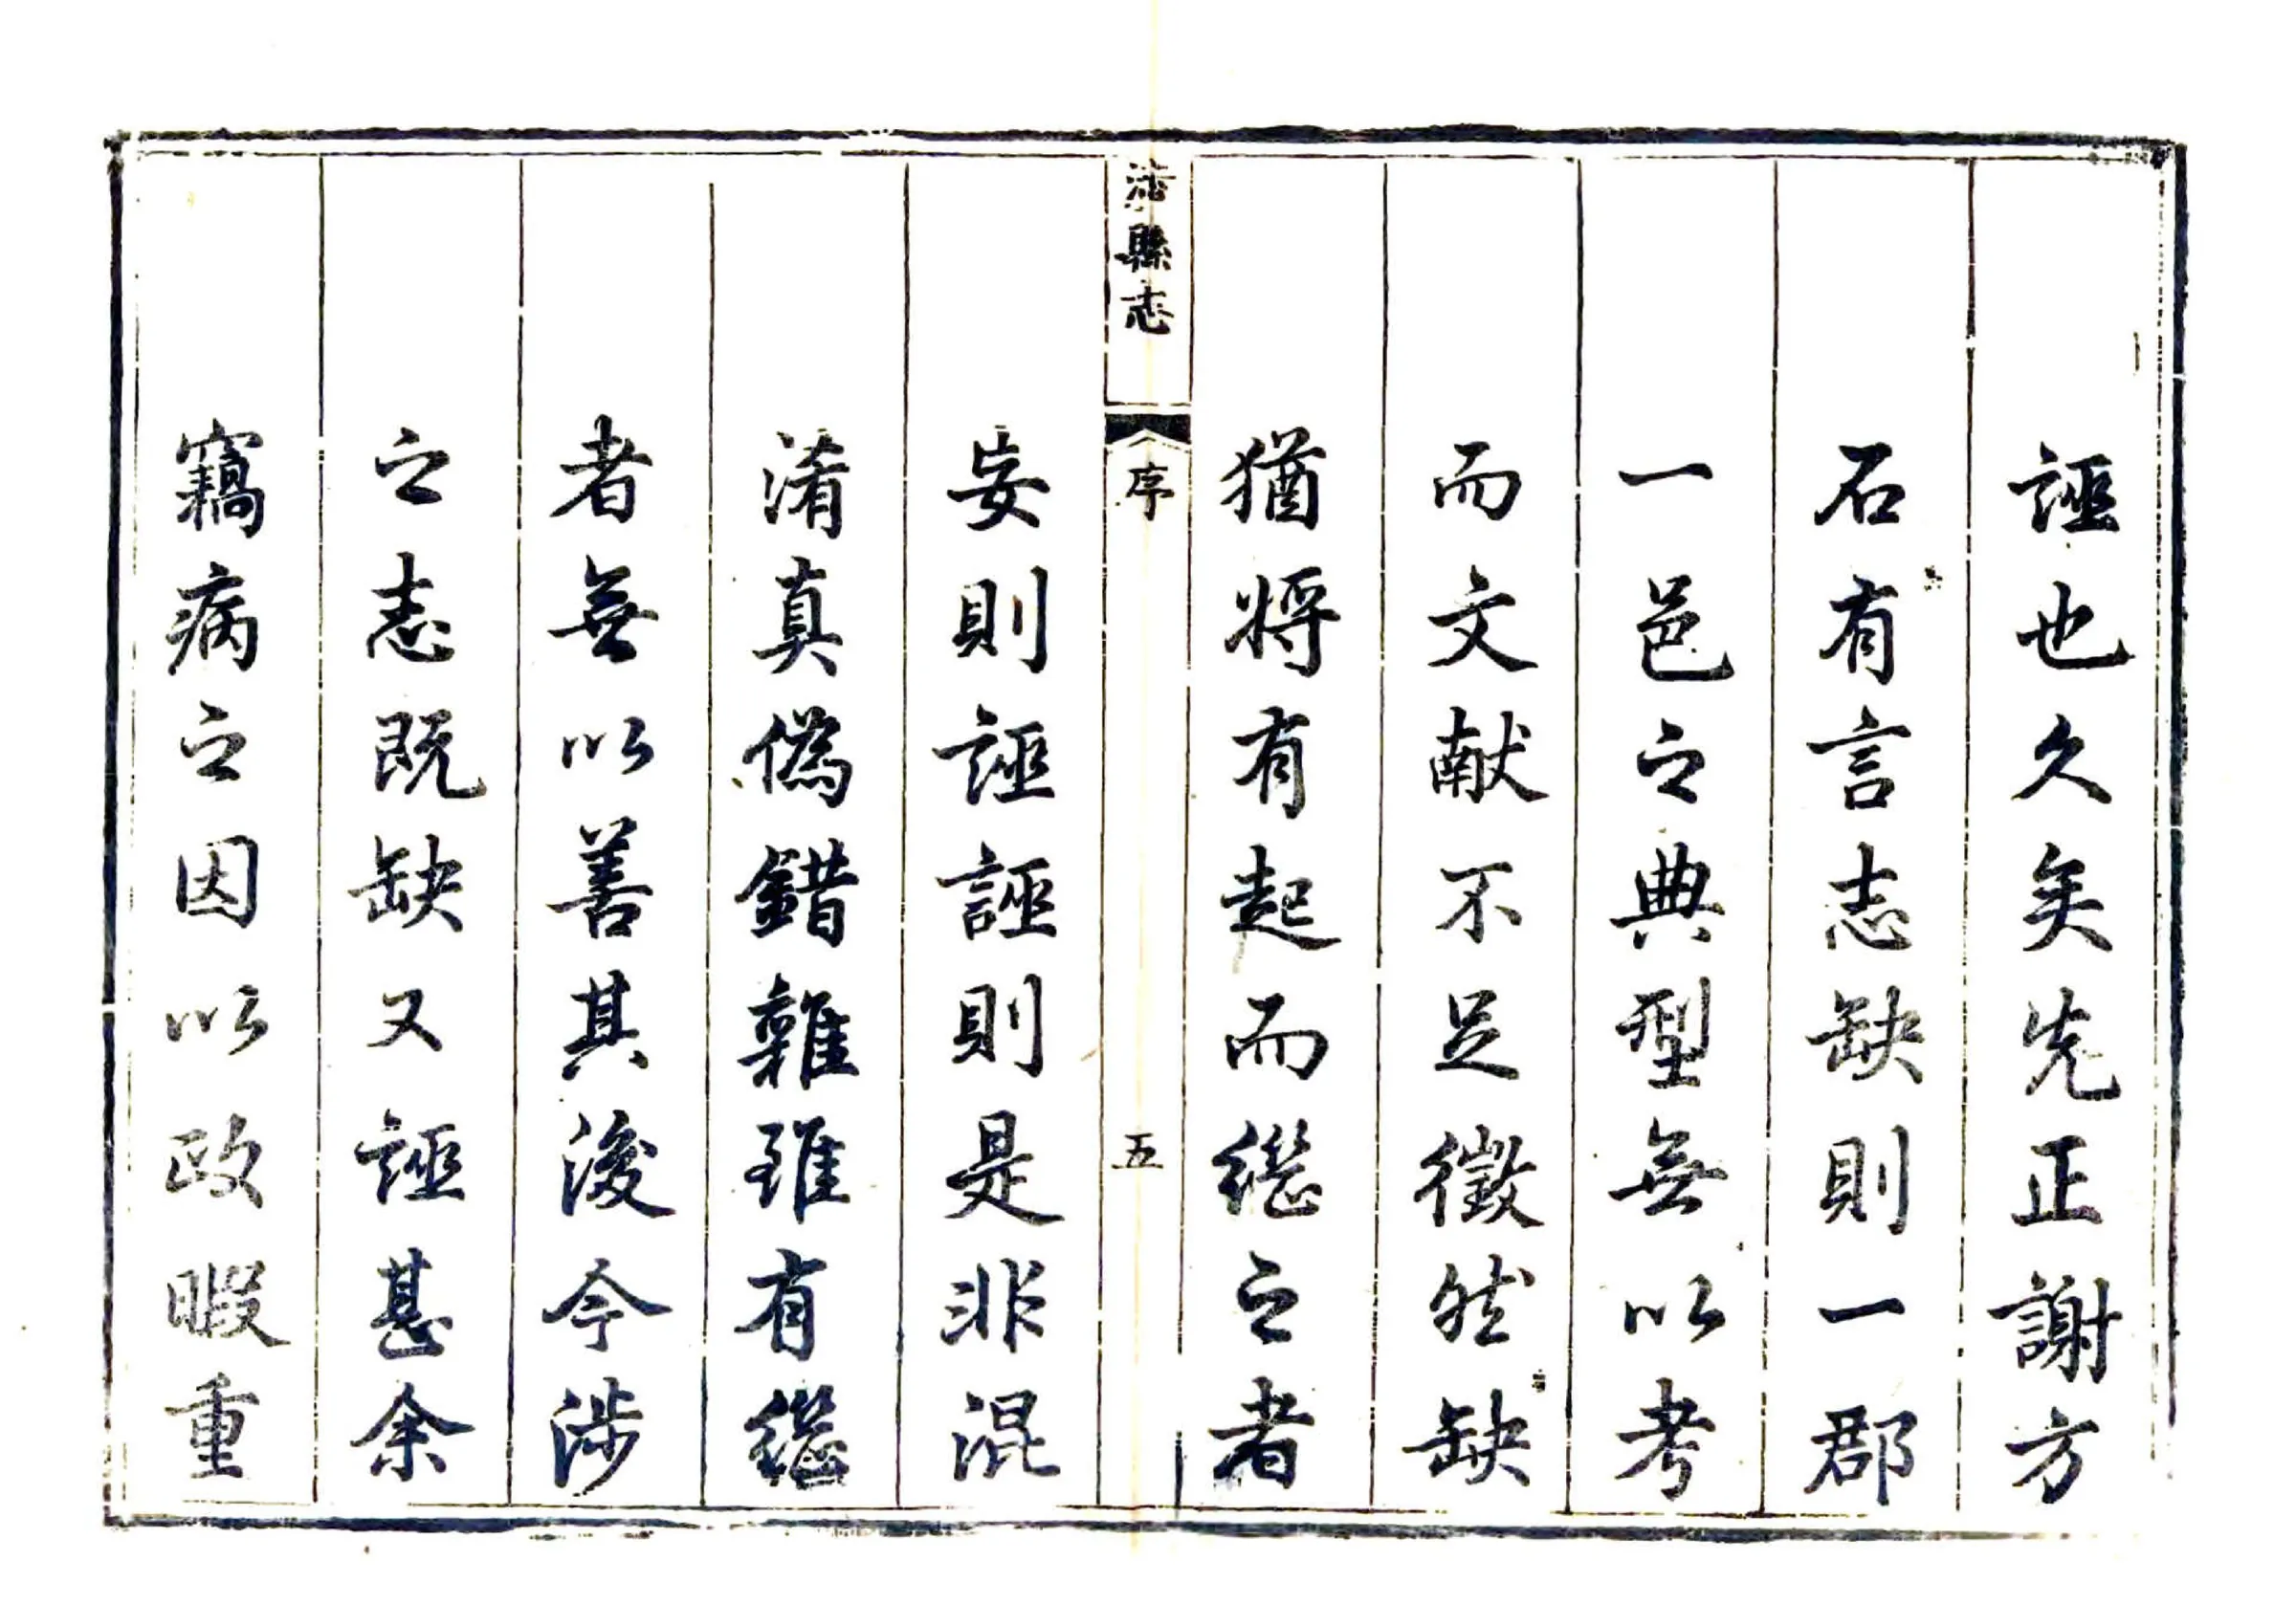 誣也久矣先正謝方
石有言志缺則一郡
一邑之典型無以考
而文献不足徵然缺
猶將有起而継之者
涉縣志
序
五
妄則誣誣則是非混
淆真偽錯雜雖有継
者無以善其後今涉
之志既缺又誣甚余
竊病之因以政暇重